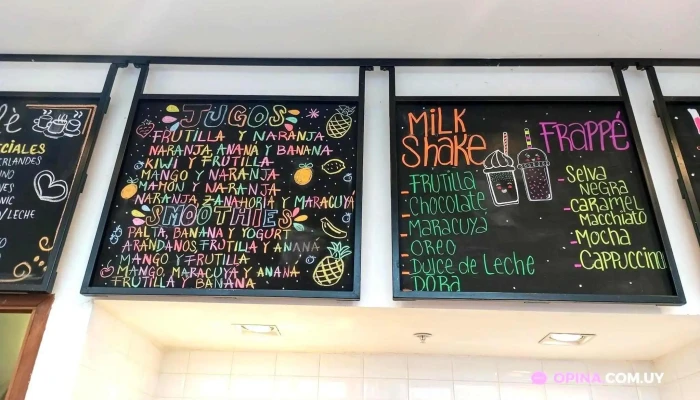 è
CIALES
ERLANDES
INO
NIC
/LECHE
JUGOS
FRUTILLA Y NARANJA
NARANJA, ANANÁ Y BANANA
KIWI Y FRUTILLA
MANGO Y NARANJA
MAMÓN Y NARANJA
NARANJA, ZANAHORIA Y MARACUYA
SMOOTHIES
PALTA, BANANA Y YOGURT
ARANDANOS, FRUTILLA Y ANANA
MANGO Y FRUTILLA
MANGO, MARACUYA Y ANANA
FRUTILLA Y BANANA
MILK
Shake
FRUTILLA
Chocolate
MARACUYÁ
OREO
Dulce de Leche
DORA
FRAPPÉ
Selva
Negra
CARAMEL
MACCHIATO
Mocha
CAPPuccino
OPINA.COM.UY